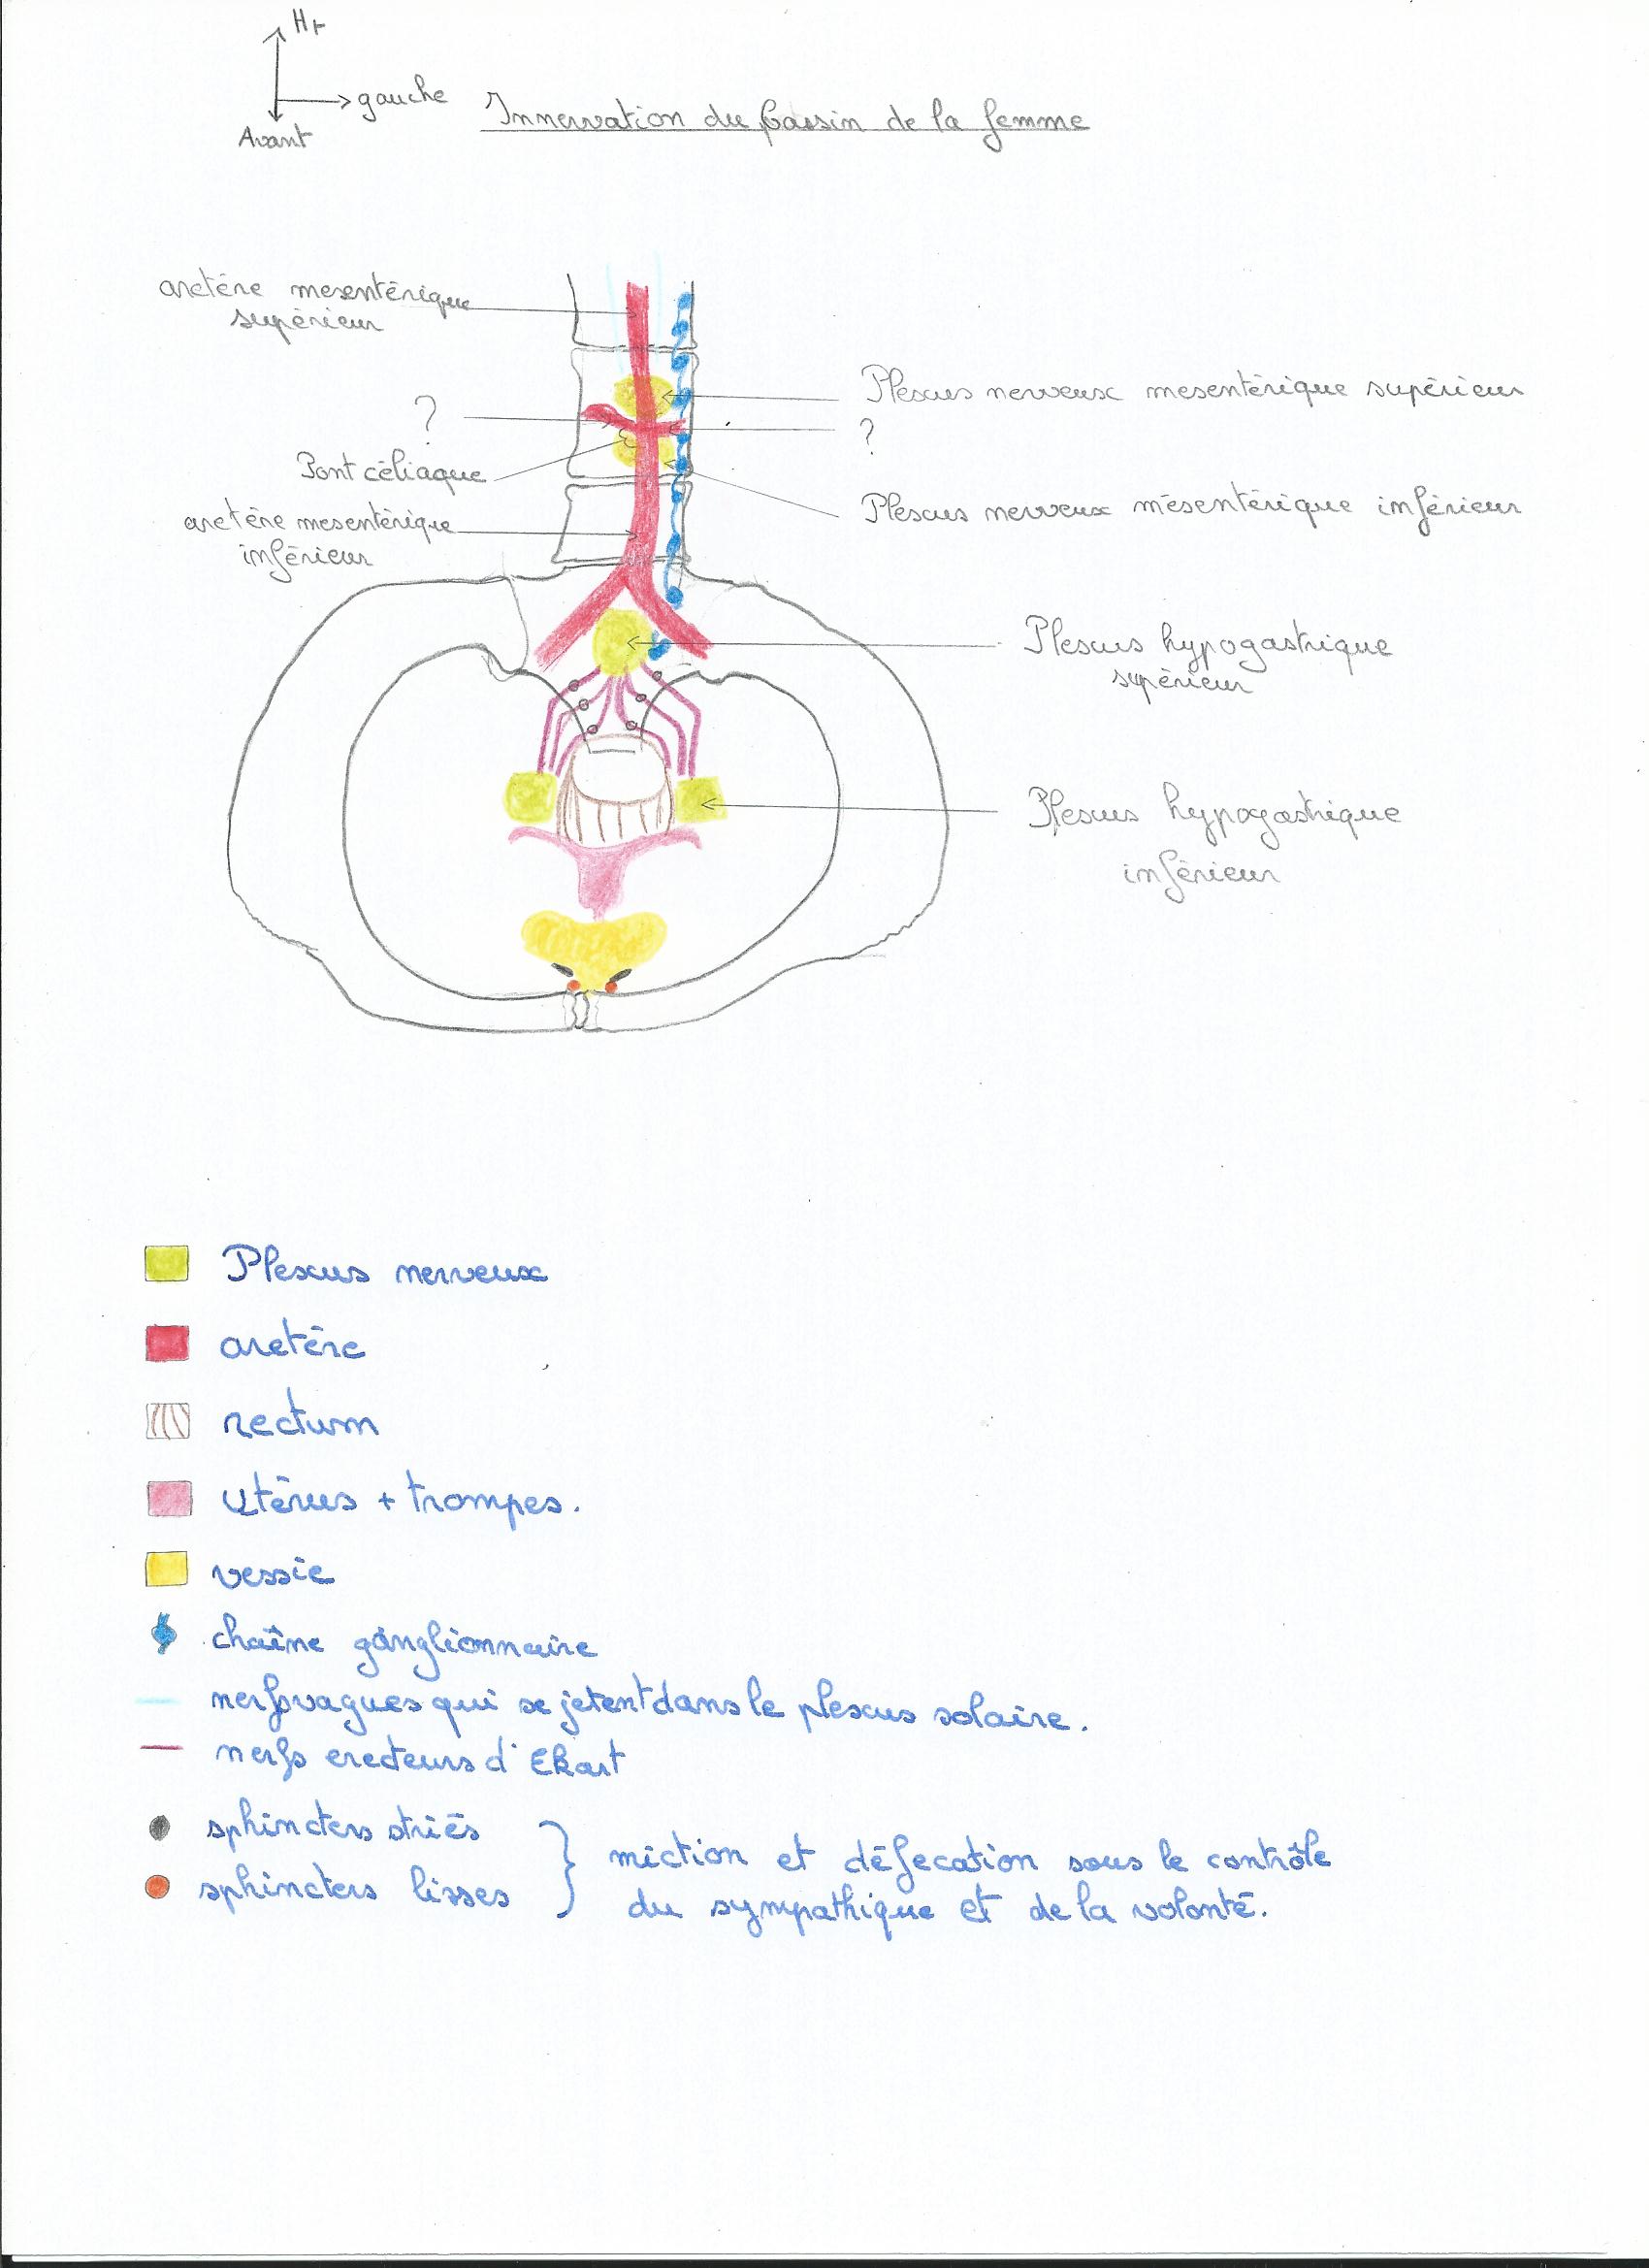 Ht
gauche
Avant
Innervation du bassin de la femme
artére mesentérique
supérieur
Plexus nerveux mesentérique supérieur
?
?
Pont céliaque
Plexus nerveux mésentérique inférieur
artére mesentérique
inférieur
Plexus hypogastrique
supérieur
Plexus hypogastrique
inférieur
Plexus nerveux
artére
rectum
Utérus + trompes.
vessie
chaîne ganglionnaire
nerfs vagues qui se jetent dans le plexus solaire.
nerfs erecteurs d'Ekart
sphincters striés
sphincters lisses
miction et défecation sous le contrôle
du sympathique et de la volonté.